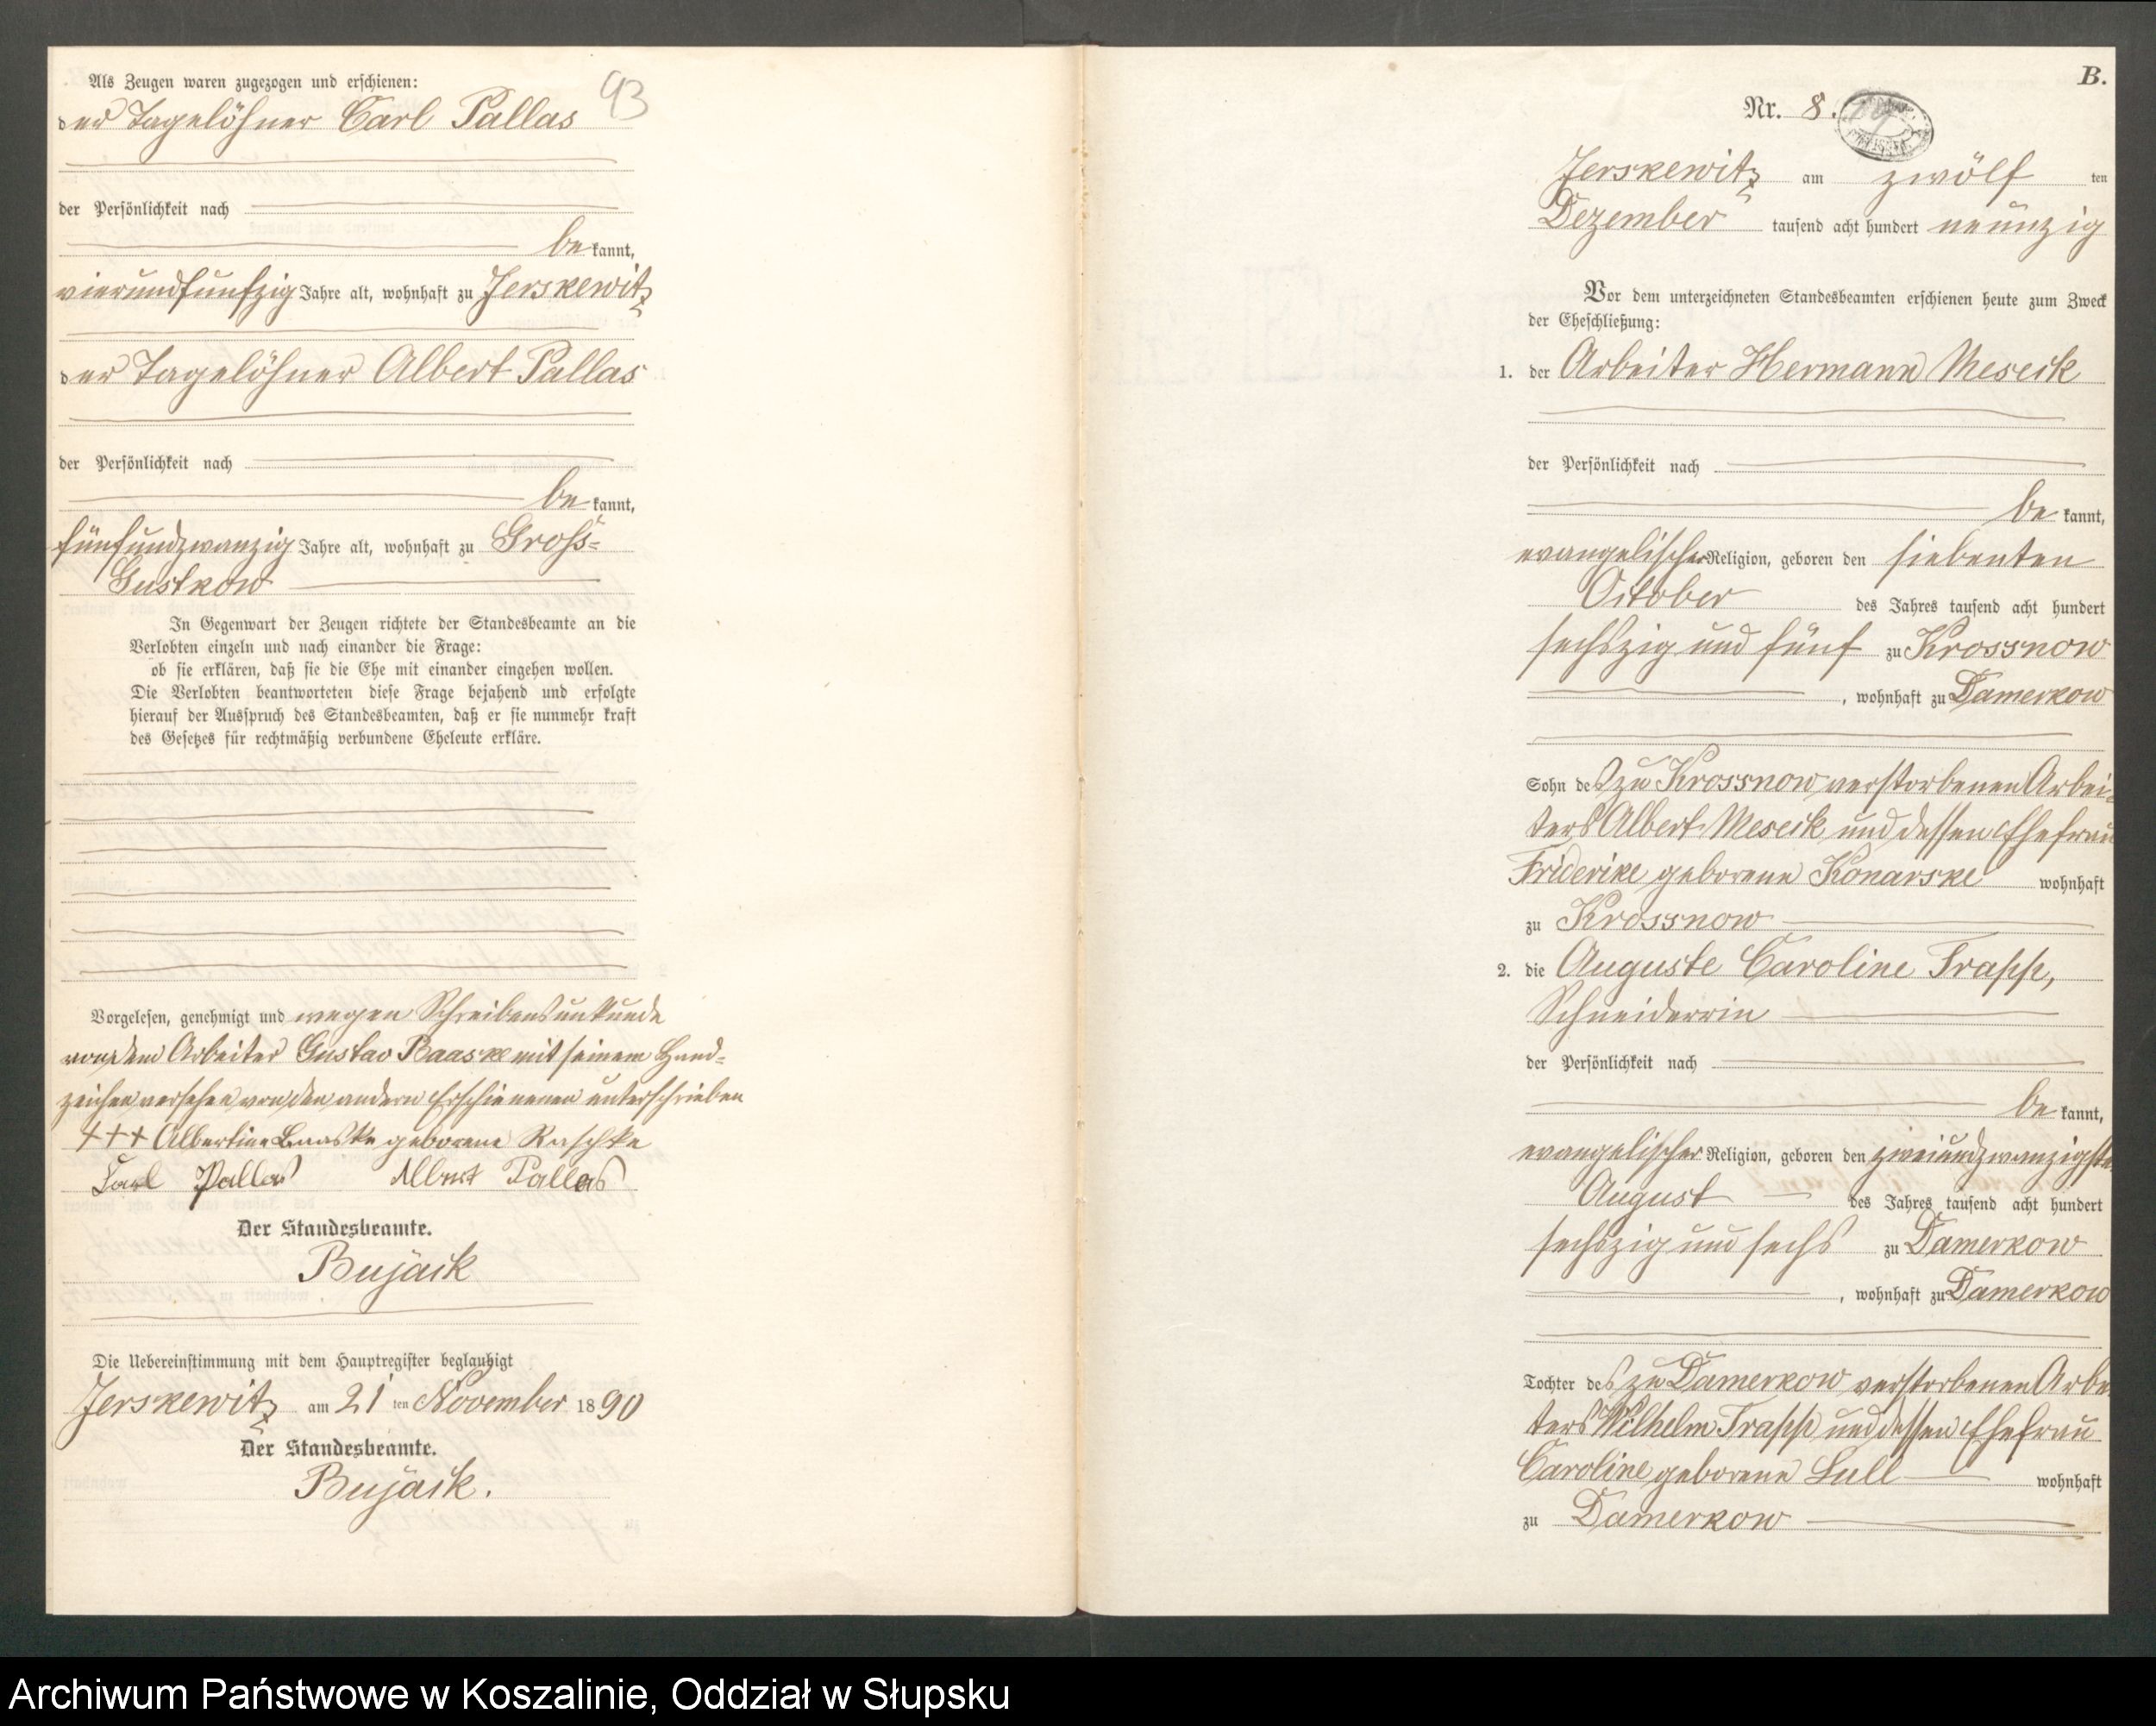 Als Zeugen waren zugezogen und erschienen:
93
der Tagelöhner Carl Pallas
der Persönlichkeit nach
be kannt,
vierundfunfzig Jahre alt, wohnhaft zu Jerskewitz
der Tagelöhner Albert Pallas
der Persönlichkeit nach
be kannt,
fünfundzwanzig Jahre alt, wohnhaft zu Gross-
Gustkow
In Gegenwart der Zeugen richtete der Standesbeamte an die
Verlobten einzeln und nach einander die Frage:
ob sie erklären, daß sie die Ehe mit einander eingehen wollen.
Die Verlobten beantworteten diese Frage bejahend und erfolgte
hierauf der Ausspruch des Standesbeamten, daß er sie nunmehr kraft
des Gesetzes für rechtmäßig verbundene Eheleute erkläre.
Vorgelesen, genehmigt und wegen Schreibensunkunde
von dem Arbeiter Gustav Baaske mit seinem Hand-
zeichen versehen von den andern Erschienenen unterschrieben
+++ Albertine Baaske geborene Raschke
Carl Pallas Albert Pallas
Der Standesbeamte.
Bujack
Die Uebereinstimmung mit dem Hauptregister beglaubigt
Jerskewitz am 21 ten November 1890
Der Standesbeamte.
Bujack.
B.
Nr. 8.
Jerskewitz am zwölf ten
Dezember tausend acht hundert neunzig
Vor dem unterzeichneten Standesbeamten erschienen heute zum Zweck
der Eheschließung:
1. der Arbeiter Hermann Meseck
der Persönlichkeit nach
be kannt,
evangelischer Religion, geboren den siebenten
October des Jahres tausend acht hundert
sechszig und fünf zu Krossnow
, wohnhaft zu Damerkow
Sohn des zu Krossnow verstorbenen Arbei-
ters Albert Meseck und dessen Ehefrau
Friderike geborene Konarske wohnhaft
zu Krossnow
2. die Auguste Caroline Trapp,
Schneiderrin
der Persönlichkeit nach
be kannt,
evangelischer Religion, geboren den zweiundzwanzigste
August des Jahres tausend acht hundert
sechszig und sechs zu Damerkow
, wohnhaft zu Damerkow
Tochter des zu Damerkow verstorbenen Arbei
ters Wilhelm Trapp und dessen Ehefrau
Caroline geborene Lull wohnhaft
zu Damerkow
Archiwum Państwowe w Koszalinie, Oddział w Słupsku